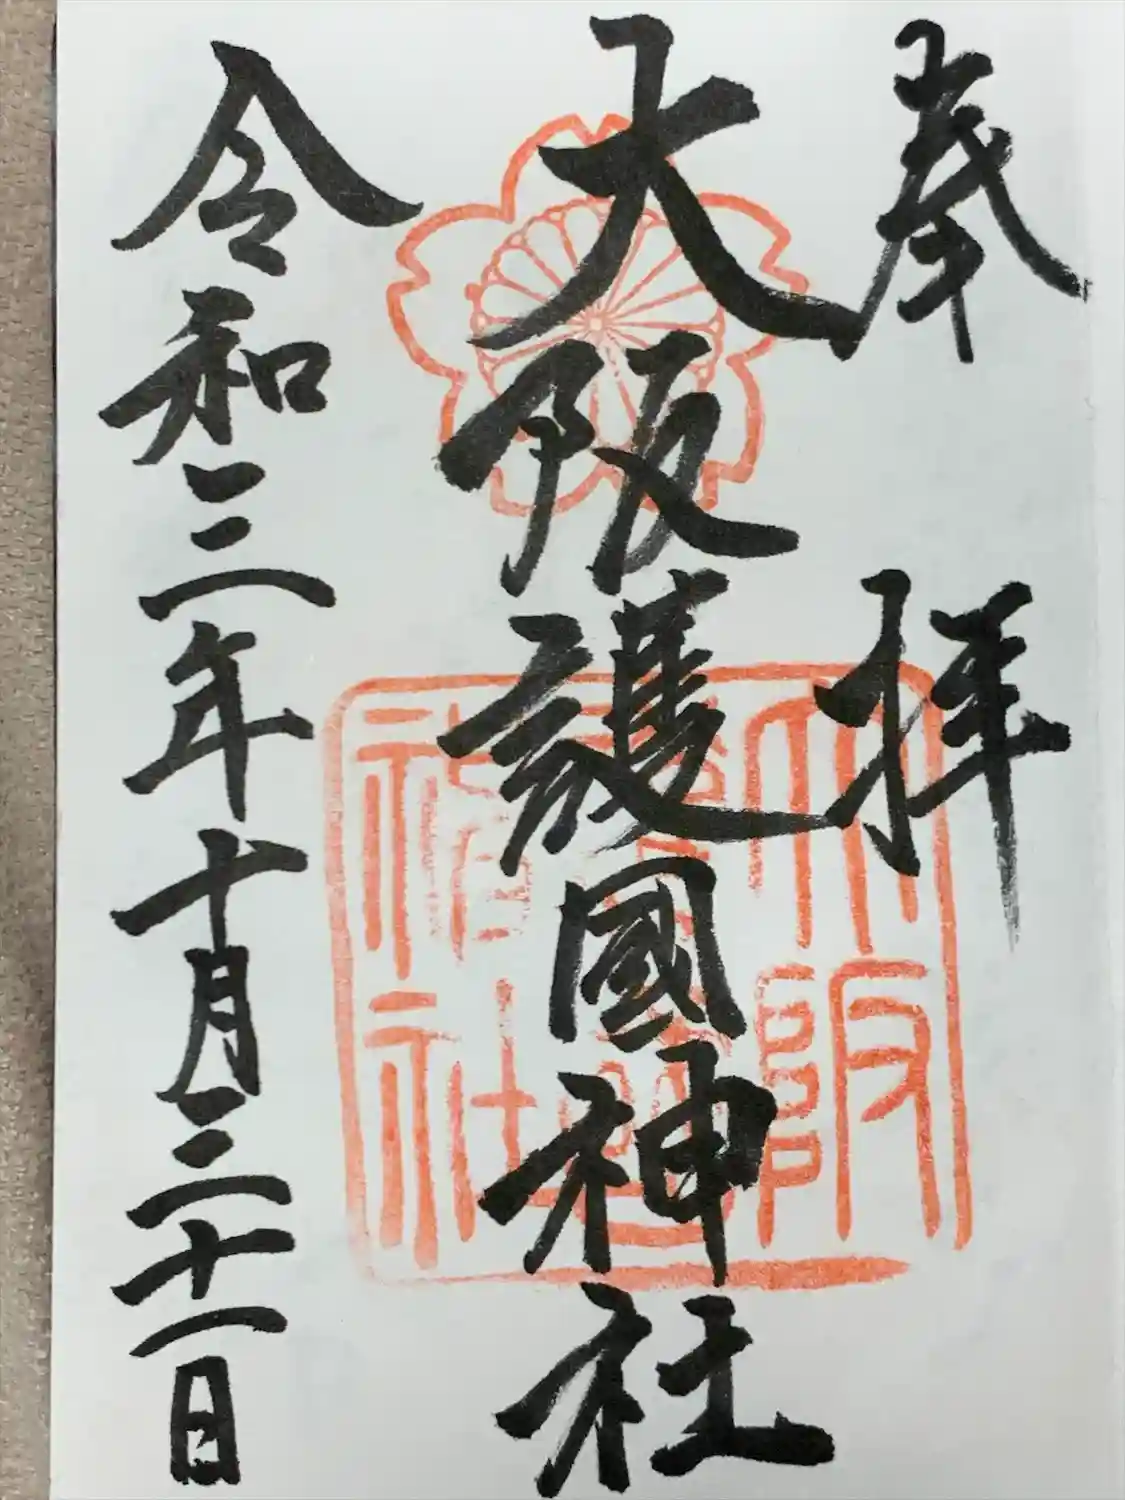 奉拝
大阪護國神社
令和三年十月三十一日
大阪
護國
神社